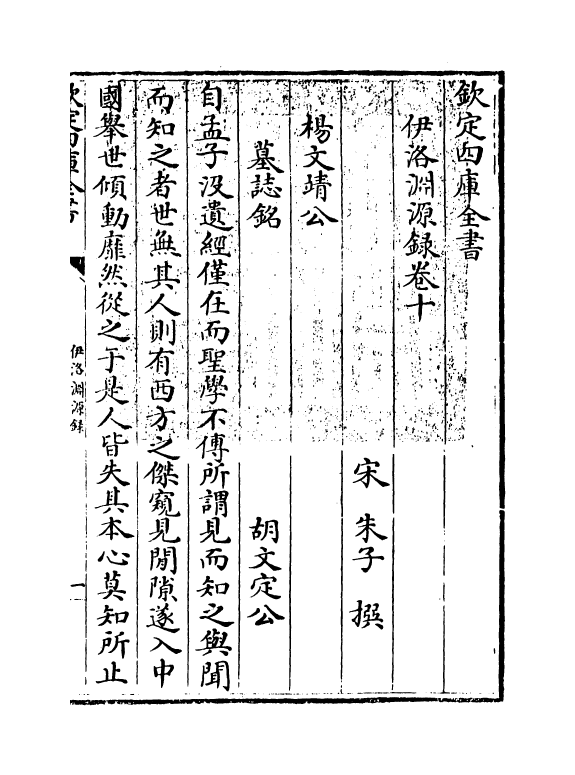 欽定四庫全書
伊洛淵源録卷十
宋 朱子 撰
楊文靖公
墓誌銘 胡文定公
自孟子没遺經僅在而聖學不傳所謂見而知之與聞
而知之者世無其人則有西方之傑窺見間隙遂入中
國舉世傾動靡然從之于是人皆失其本心莫知所止
欽定四庫全書
伊洛淵源録
一